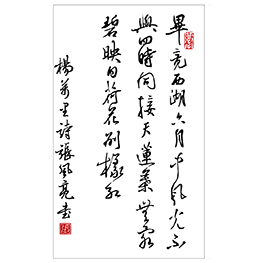 畢竟西湖六月中風光不
與四時同接天蓮葉無窮
碧映日荷花別樣紅
楊萬里詩張風亮書